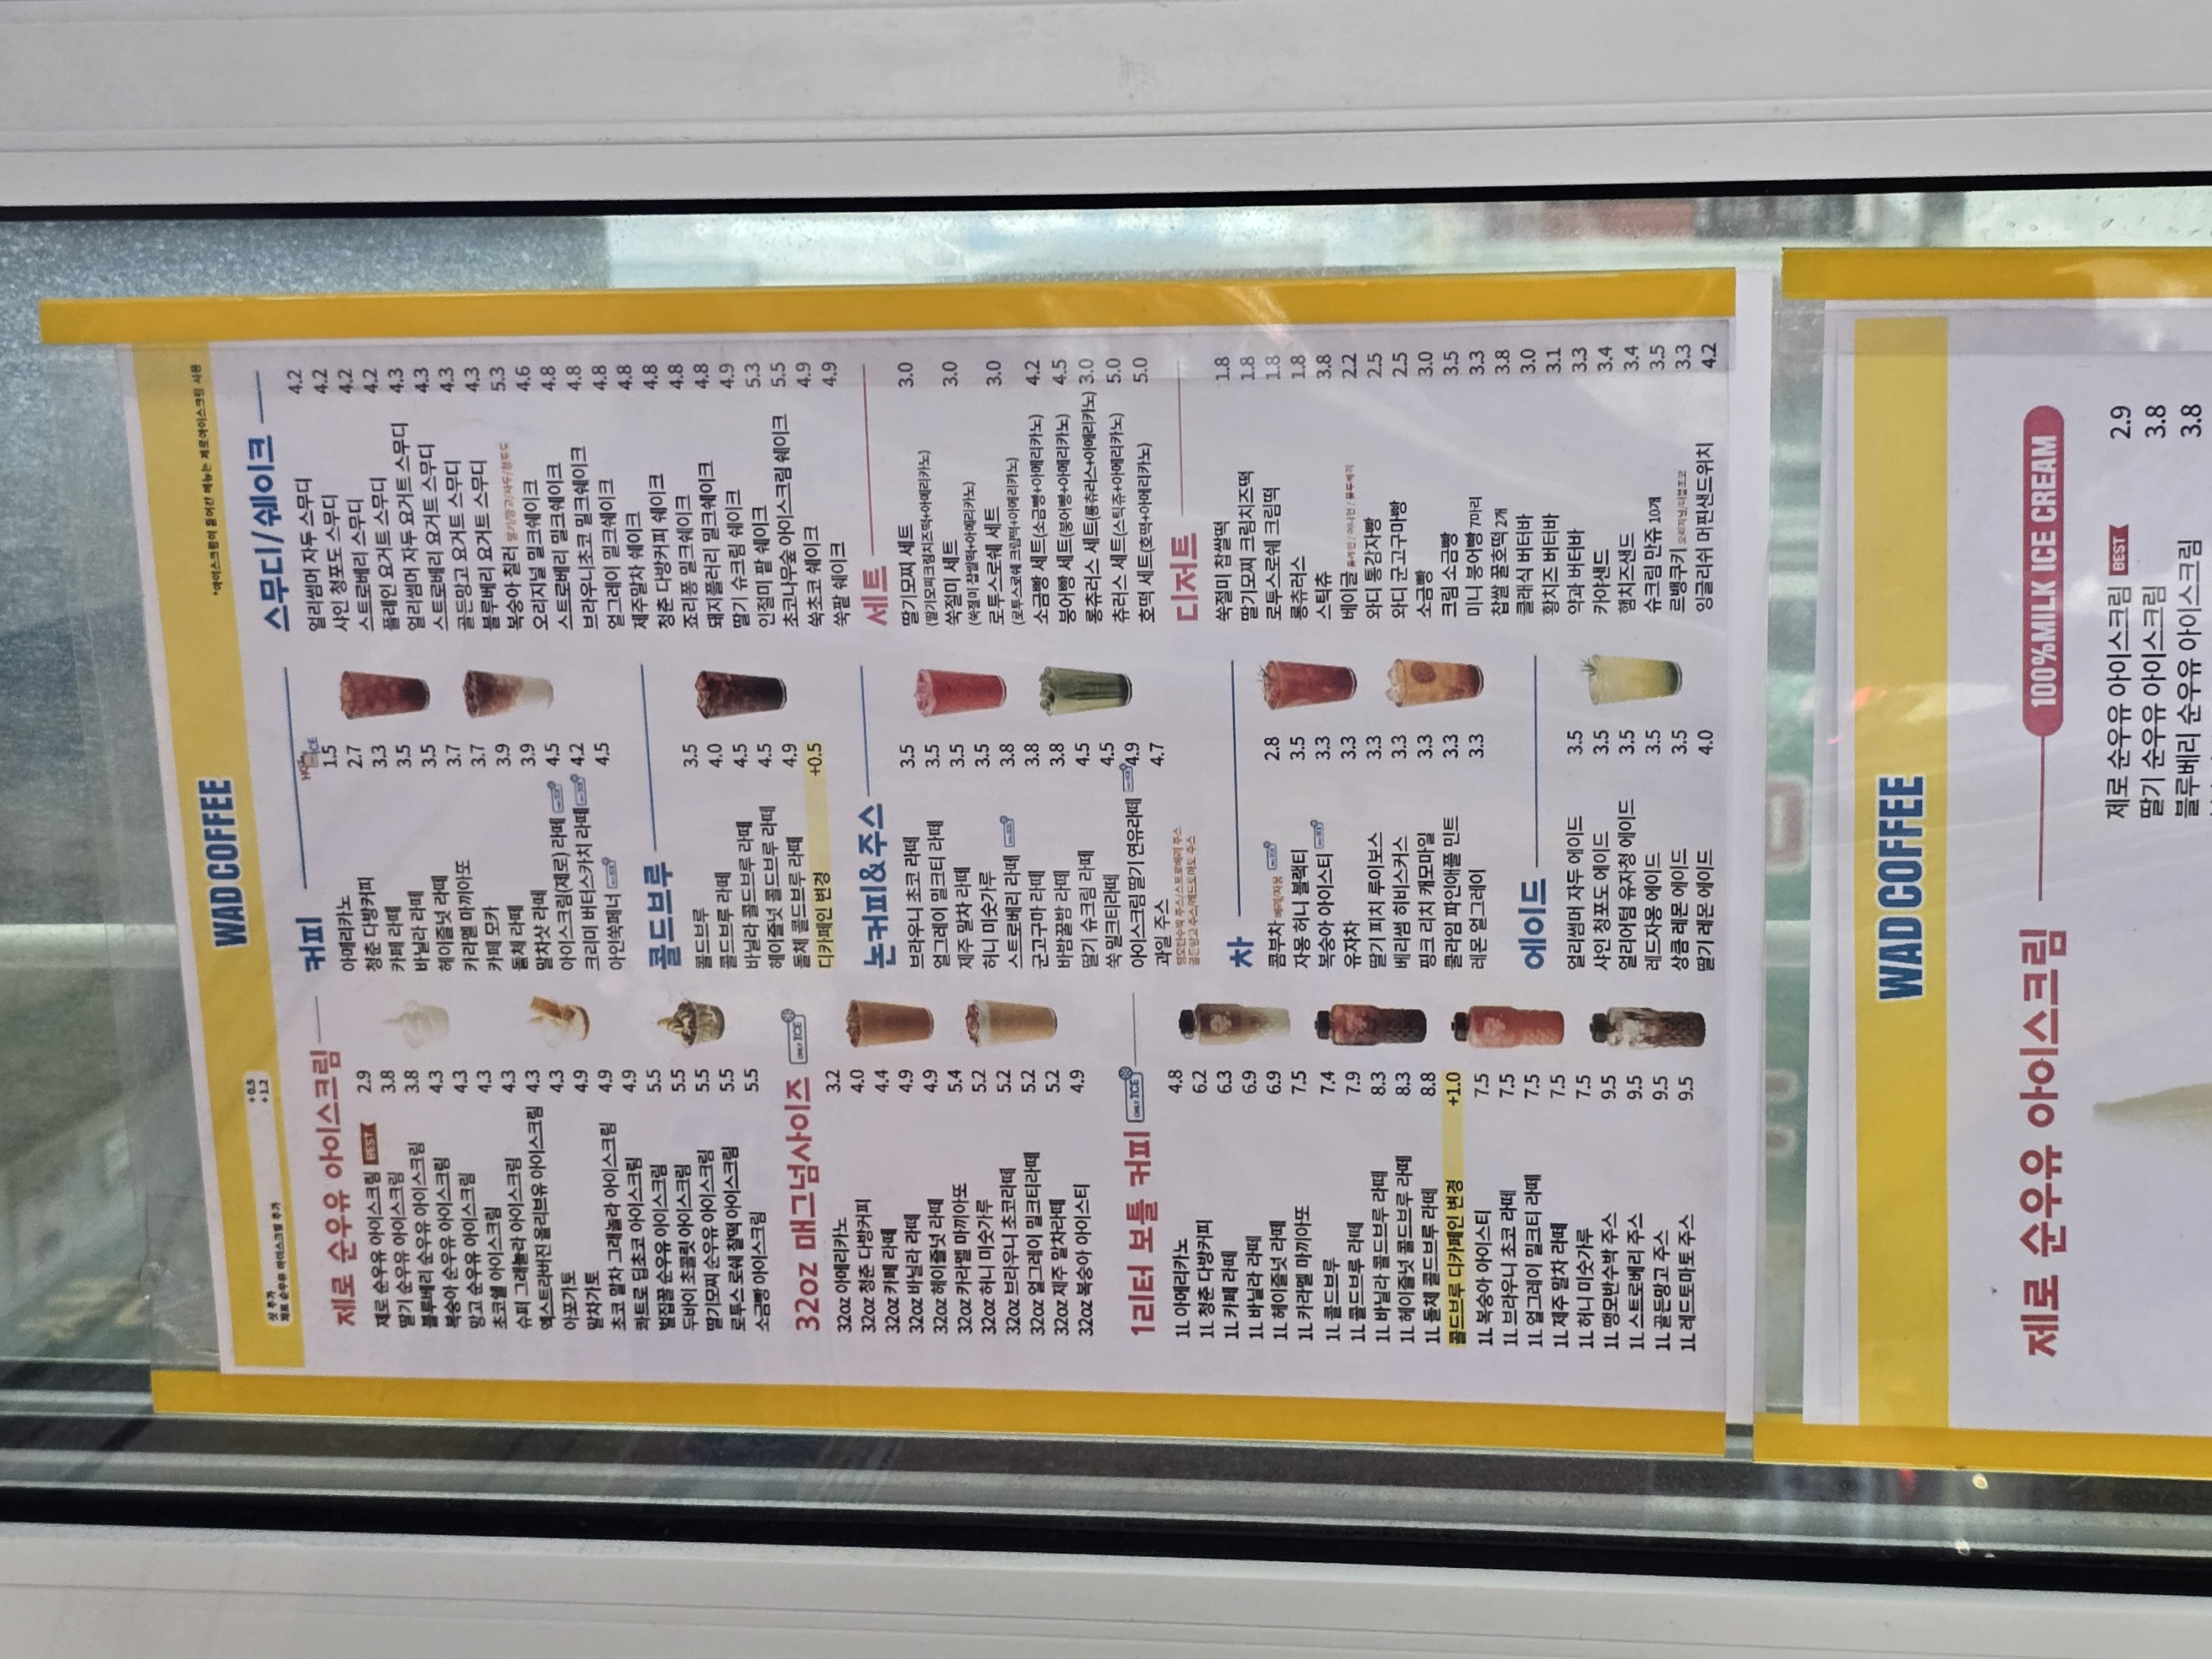 WAD COFFEE
샷 추가 +0.5
제로 순우유 아이스크림 추가 +1.2
*아이스크림이 들어간 메뉴는 제로아이스크림 사용
제로 순우유 아이스크림
제로 순우유 아이스크림 BEST 2.9
딸기 순우유 아이스크림 3.8
블루베리 순우유 아이스크림 3.8
복숭아 순우유 아이스크림 4.3
망고 순우유 아이스크림 4.3
초코쉘 아이스크림 4.3
슈퍼 그래놀라 아이스크림 4.3
엑스트라버진 올리브유 아이스크림 4.3
아포가토 4.3
말차가토 4.9
초코 말차 그래놀라 아이스크림 4.9
콰트로 딥초코 아이스크림 4.9
벌집꿀 순우유 아이스크림 5.5
두바이 초콜릿 아이스크림 5.5
딸기모찌 순우유 아이스크림 5.5
로투스 로쉐 찰떡 아이스크림 5.5
소금빵 아이스크림 5.5
32oz 매그넘사이즈 ONLY ICE
32oz 아메리카노 3.2
32oz 청춘 다방커피 4.0
32oz 카페 라떼 4.4
32oz 바닐라 라떼 4.9
32oz 헤이즐넛 라떼 4.9
32oz 카라멜 마끼아또 5.4
32oz 허니 미숫가루 5.2
32oz 브라우니 초코라떼 5.2
32oz 얼그레이 밀크티라떼 5.2
32oz 제주 말차라떼 5.2
32oz 복숭아 아이스티 4.9
1리터 보틀 커피 ONLY ICE
1L 아메리카노 4.8
1L 청춘 다방커피 6.2
1L 카페 라떼 6.3
1L 바닐라 라떼 6.9
1L 헤이즐넛 라떼 6.9
1L 카라멜 마끼아또 7.5
1L 콜드브루 7.4
1L 콜드브루 라떼 7.9
1L 바닐라 콜드브루 라떼 8.3
1L 헤이즐넛 콜드브루 라떼 8.3
1L 돌체 콜드브루 라떼 8.8
콜드브루 디카페인 변경 +1.0
1L 복숭아 아이스티 7.5
1L 브라우니 초코 라떼 7.5
1L 얼그레이 밀크티 라떼 7.5
1L 제주 말차 라떼 7.5
1L 허니 미숫가루 7.5
1L 땡모반수박 주스 9.5
1L 스트로베리 주스 9.5
1L 골든망고 주스 9.5
1L 레드토마토 주스 9.5
커피
HOT ICE
아메리카노 1.5
청춘 다방커피 2.7
카페 라떼 3.3
바닐라 라떼 3.5
헤이즐넛 라떼 3.5
카라멜 마끼아또 3.7
카페 모카 3.7
돌체 라떼 3.9
말차샷 라떼 3.9
아이스크림(제로) 라떼 4.5
크리미 버터스카치 라떼 4.2
아인쑥페너 4.5
콜드브루
콜드브루 3.5
콜드브루 라떼 4.0
바닐라 콜드브루 라떼 4.5
헤이즐넛 콜드브루 라떼 4.5
돌체 콜드브루 라떼 4.9
디카페인 변경 +0.5
논커피&주스
브라우니 초코 라떼 3.5
얼그레이 밀크티 라떼 3.5
제주 말차 라떼 3.5
허니 미숫가루 3.5
스트로베리 라떼 3.8
군고구마 라떼 3.8
바밤꿀밤 라떼 3.8
딸기 슈크림 라떼 4.5
쑥 밀크티라떼 4.5
아이스크림 딸기 연유라떼 4.9
과일 주스 4.7
땡모반수박 주스/스트로베리 주스
골든망고 주스/레드토마토 주스
차
콤부차 베리/자몽 2.8
자몽 허니 블랙티 3.5
복숭아 아이스티 3.3
유자차 3.3
딸기 피치 루이보스 3.3
베리썸 히비스커스 3.3
핑크 리치 캐모마일 3.3
쿨라임 파인애플 민트 3.3
레몬 얼그레이 3.3
에이드
얼리썸머 자두 에이드 3.5
샤인 청포도 에이드 3.5
얼리어텀 유자청 에이드 3.5
레드자몽 에이드 3.5
상큼 레몬 에이드 3.5
딸기 레몬 에이드 4.0
스무디/쉐이크
얼리썸머 자두 스무디 4.2
샤인 청포도 스무디 4.2
스트로베리 스무디 4.2
플레인 요거트 스무디 4.2
얼리썸머 자두 요거트 스무디 4.3
스트로베리 요거트 스무디 4.3
골든망고 요거트 스무디 4.3
블루베리 요거트 스무디 4.3
복숭아 칠러 딸기/망고/자두/청포도 5.3
오리지널 밀크쉐이크 4.6
스트로베리 밀크쉐이크 4.8
브라우니초코 밀크쉐이크 4.8
얼그레이 밀크쉐이크 4.8
제주말차 쉐이크 4.8
청춘 다방커피 쉐이크 4.8
죠리퐁 밀크쉐이크 4.8
돼지플러리 밀크쉐이크 4.8
딸기 슈크림 쉐이크 4.9
인절미 팥 쉐이크 5.3
초코나무숲 아이스크림 쉐이크 5.5
쑥초코 쉐이크 4.9
쑥팥 쉐이크 4.9
세트
딸기모찌 세트 3.0
(딸기모찌크림치즈떡+아메리카노)
쑥절미 세트 3.0
(쑥절미 찹쌀떡+아메리카노)
로투스로쉐 세트 3.0
(로투스로쉐 크림떡+아메리카노)
소금빵 세트(소금빵+아메리카노) 4.2
붕어빵 세트(붕어빵+아메리카노) 4.5
롱츄러스 세트(롱츄러스+아메리카노) 3.0
츄러스 세트(스틱츄+아메리카노) 5.0
호떡 세트(호떡+아메리카노) 5.0
디저트
쑥절미 찹쌀떡 1.8
딸기모찌 크림치즈떡 1.8
로투스로쉐 크림떡 1.8
롱츄러스 1.8
스틱츄 3.8
베이글 플레인 / 어니언 / 블루베리 2.2
와디 통감자빵 2.5
와디 군고구마빵 2.5
소금빵 3.0
크림 소금빵 3.5
미니 붕어빵 7마리 3.3
찹쌀 꿀호떡 2개 3.8
클래식 버터바 3.0
황치즈 버터바 3.1
약과 버터바 3.3
카야샌드 3.4
햄치즈샌드 3.4
슈크림 만쥬 10개 3.5
르뱅쿠키 오리지널/더블초코 3.3
잉글리쉬 머핀샌드위치 4.2
WAD COFFEE
제로 순우유 아이스크림 100%MILK ICE CREAM
제로 순우유 아이스크림 BEST 2.9
딸기 순우유 아이스크림 3.8
블루베리 순우유 아이스크림 3.8